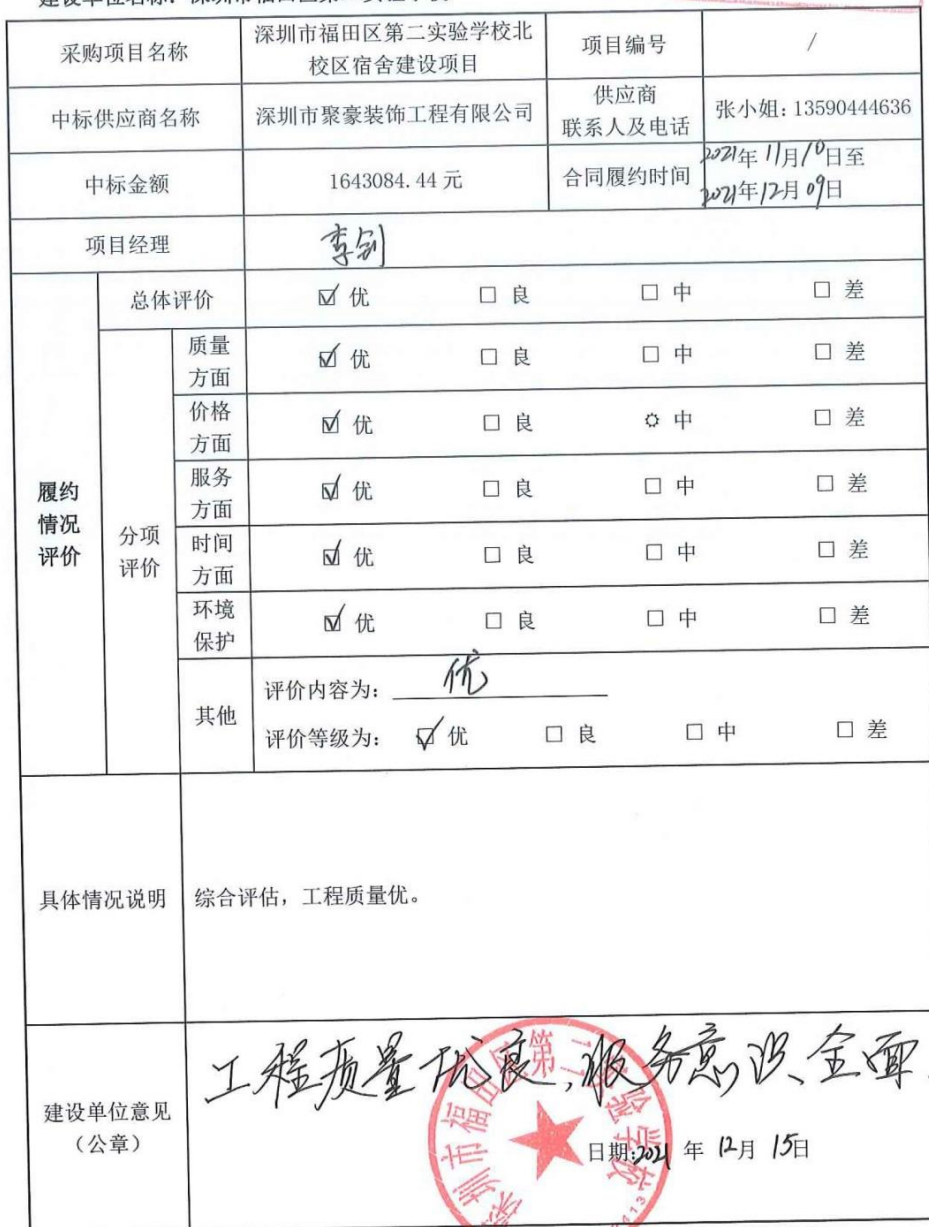 采购项目名称
深圳市福田区第二实验学校北
校区宿舍建设项目
项目编号
/
中标供应商名称
深圳市聚豪装饰工程有限公司
供应商
联系人及电话
张小姐: 13590444636
中标金额
1643084.44 元
合同履约时间
2021年 11月10日至
2021年12月09日
项目经理
李剑
履约
情况
评价
总体评价
☑ 优 □ 良 □ 中 □ 差
分项
评价
质量
方面
☑ 优 □ 良 □ 中 □ 差
价格
方面
☑ 优 □ 良 中 □ 差
服务
方面
☑ 优 □ 良 □ 中 □ 差
时间
方面
☑ 优 □ 良 □ 中 □ 差
环境
保护
☑ 优 □ 良 □ 中 □ 差
其他
评价内容为: 优
评价等级为: ☑ 优 □ 良 □ 中 □ 差
具体情况说明
综合评估，工程质量优。
建设单位意见
（公章）
工程质量优良，服务意识全面
日期:2021 年 12月 15日